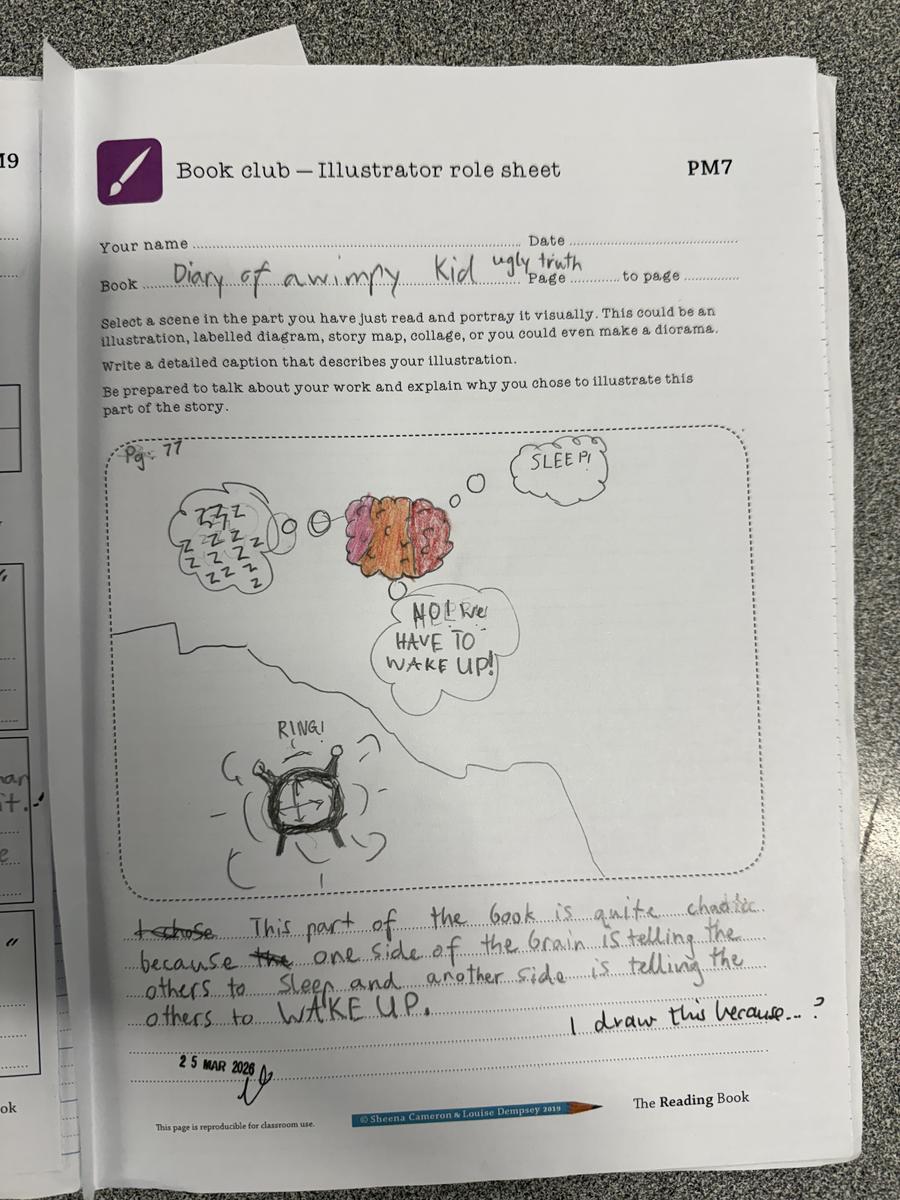 M9
Book club — Illustrator role sheet
PM7
Your name
Date
Book Diary of a wimpy Kid ugly truth
Page to page
Select a scene in the part you have just read and portray it visually. This could be an
illustration, labelled diagram, story map, collage, or you could even make a diorama.
Write a detailed caption that describes your illustration.
Be prepared to talk about your work and explain why you chose to illustrate this
part of the story.
Pg: 77
SLEEP!
zzz
z z z
z z z z
z z z
z
NO! We
HAVE TO
WAKE UP!
RING!
I chose This part of the book is quite chaotic
because the one side of the brain is telling the
others to sleep and another side is telling the
others to WAKE UP.
I draw this because...?
25 MAR 2026
© Sheena Cameron & Louise Dempsey 2019
The Reading Book
This page is reproducible for classroom use.
it.
ok